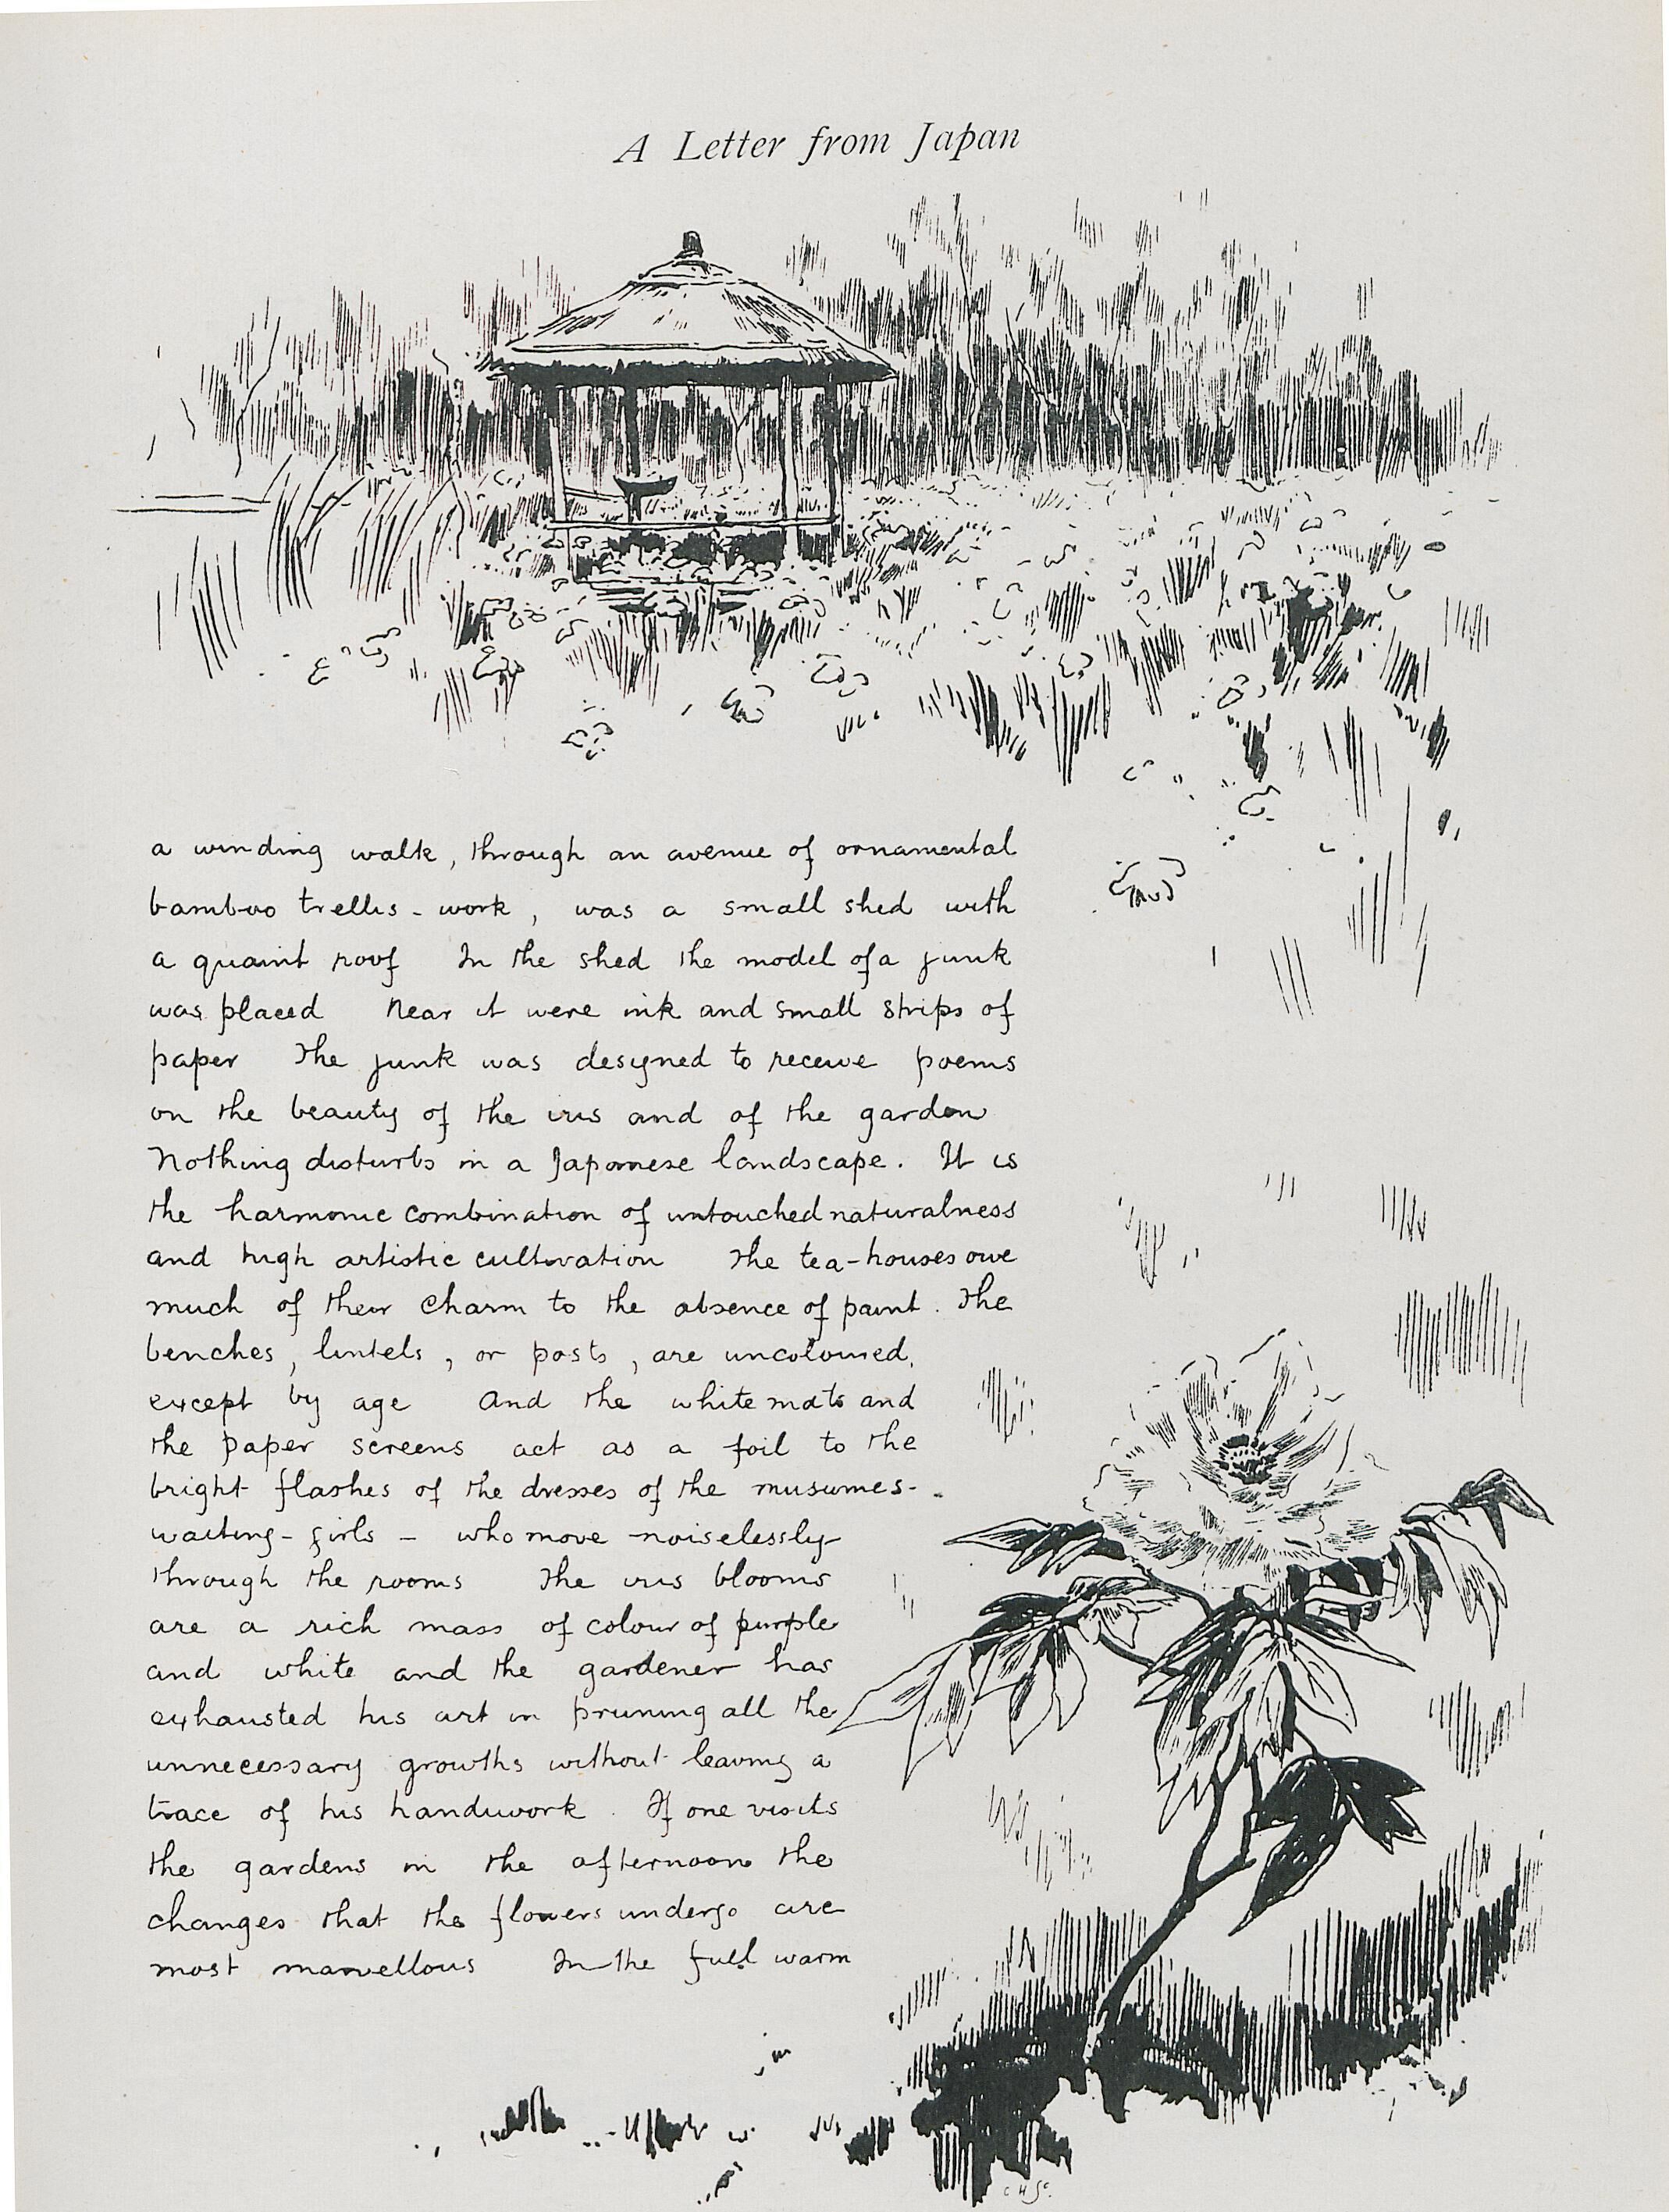 A Letter from Japan
a winding walk, through an avenue of ornamental
bamboo trellis-work, was a small shed with
a quaint roof In the shed the model of a junk
was placed Near it were ink and small strips of
paper The junk was designed to receive poems
on the beauty of the iris and of the garden
Nothing disturbs in a Japanese landscape. It is
the harmonic combination of untouched naturalness
and high artistic cultivation The tea-houses owe
much of their charm to the absence of paint. The
benches, lintels, or posts, are uncoloured,
except by age And the white mats and
the paper screens act as a foil to the
bright flashes of the dresses of the musumes-
waiting-girls - who move noiselessly
through the rooms The iris blooms
are a rich mass of colour of purple
and white and the gardener has
exhausted his art in pruning all the
unnecessary growths without leaving a
trace of his handiwork. If one visits
the gardens in the afternoon the
changes that the flowers undergo are
most marvellous In the full warm